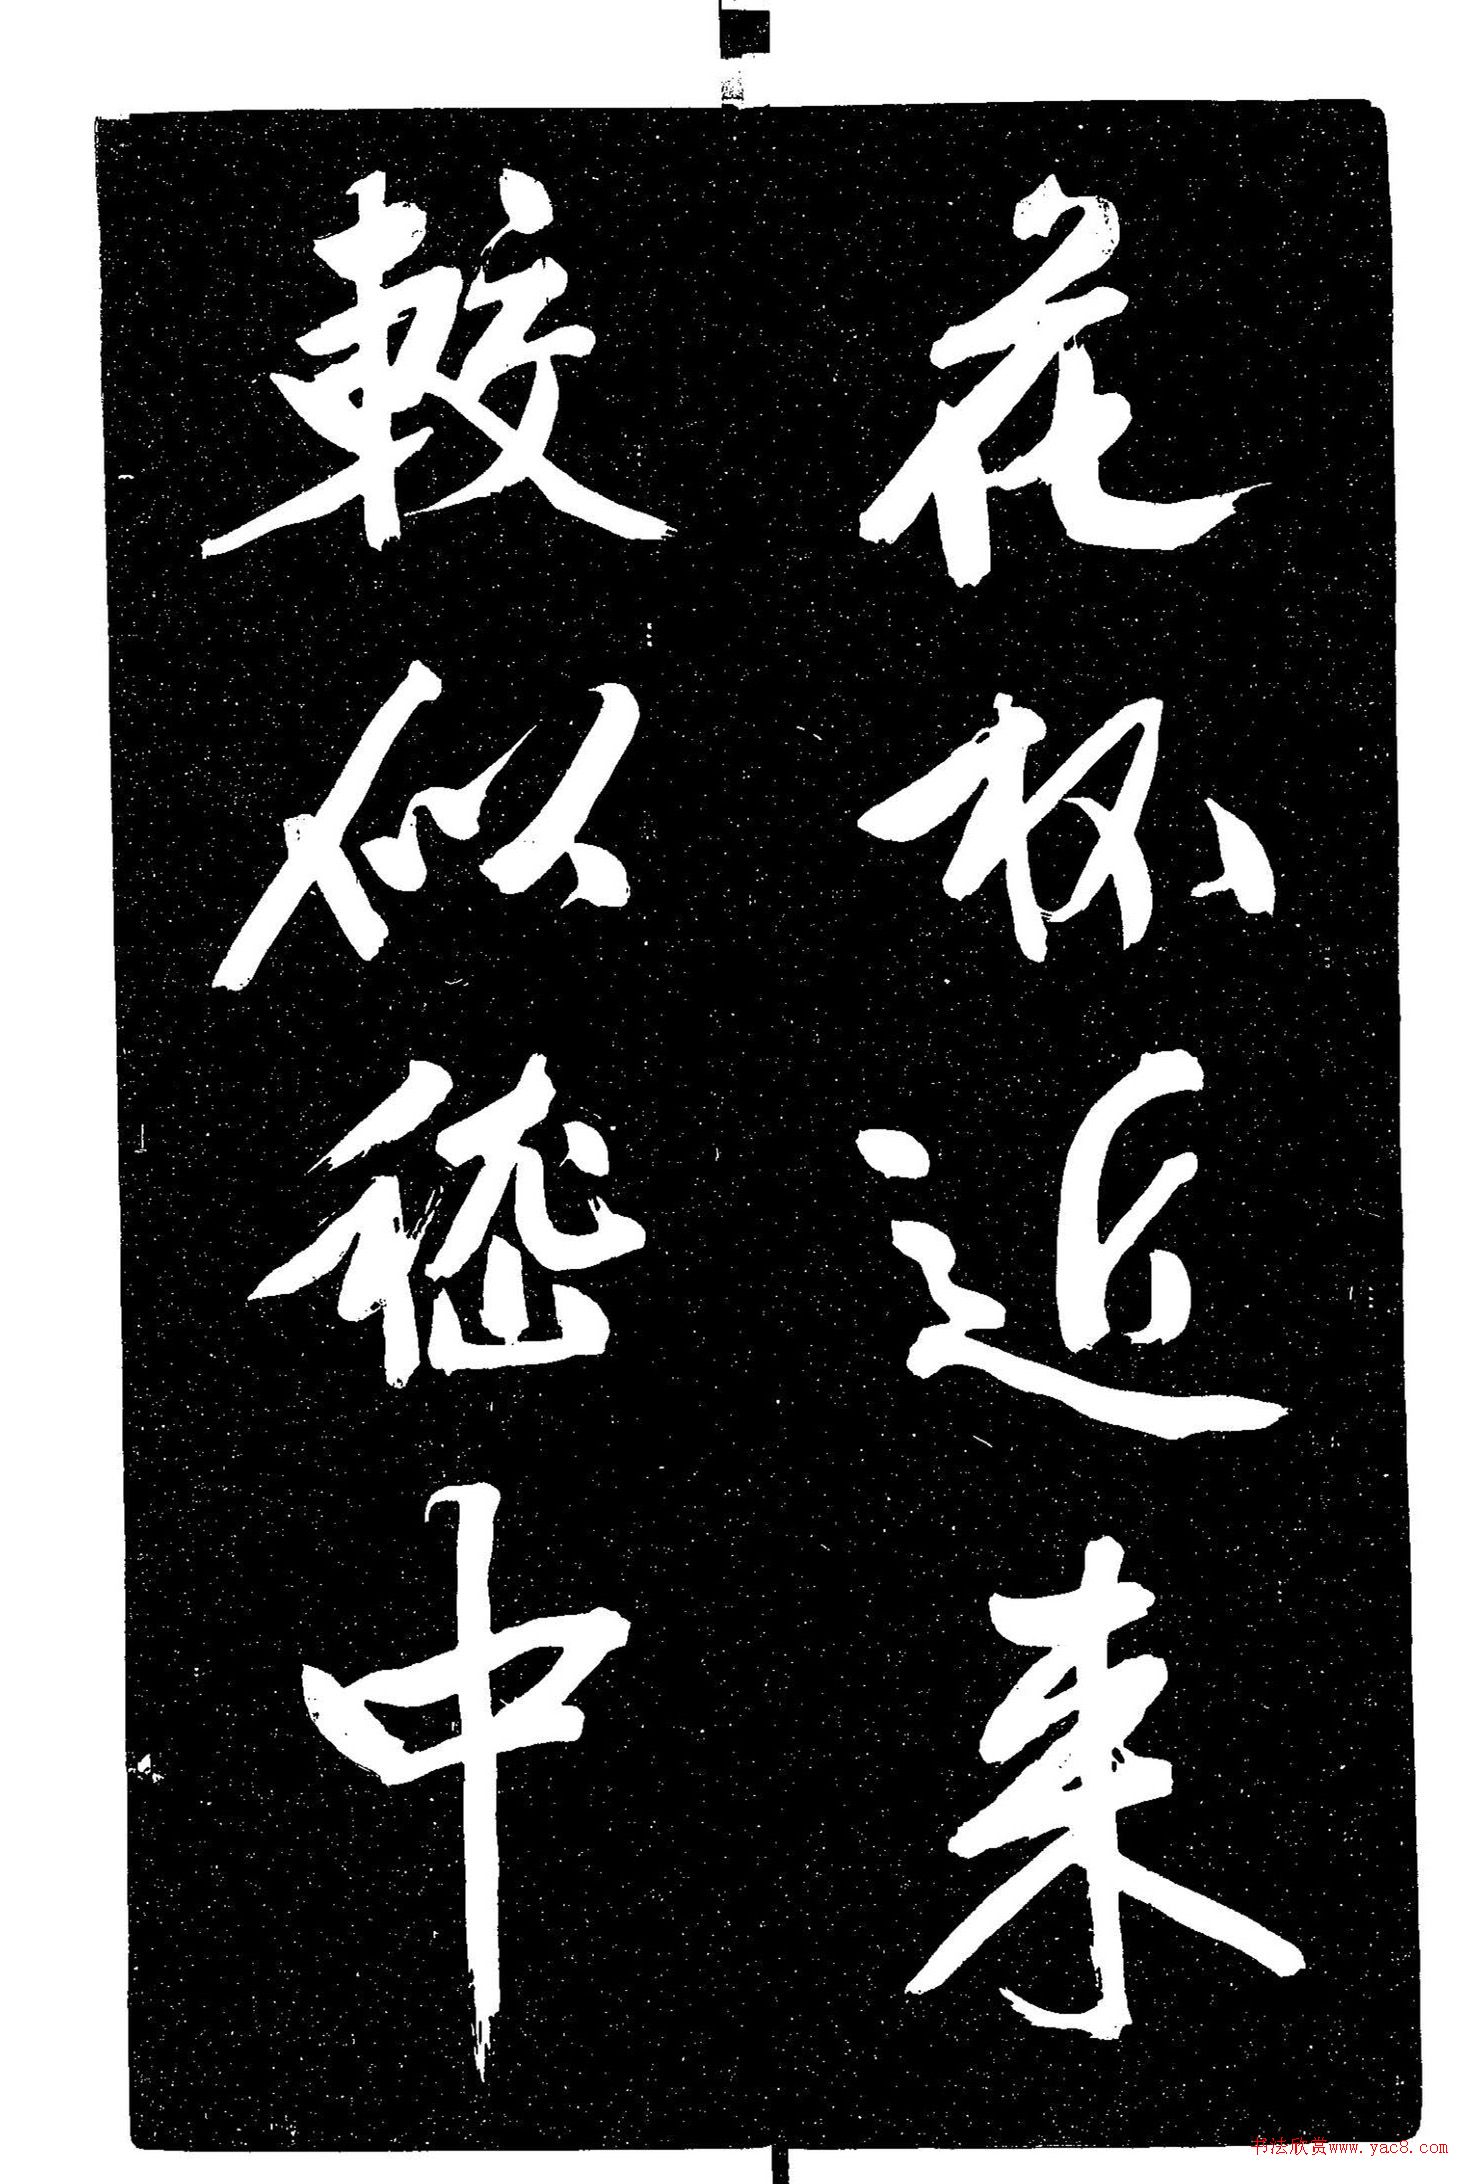 花杯近来
較似嵇中
书法欣赏www.yac8.com